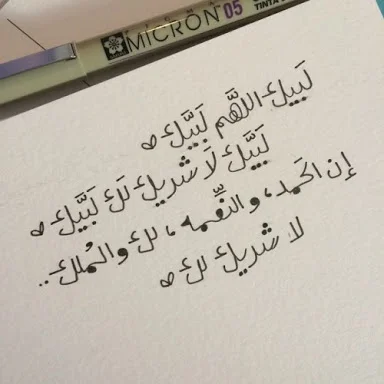 MICRON 05
لَبيك اللهَّم لَبَيَّك
لَبَيَّك لَا شريك لَك لَبَيَّك
إن الحَمد، و النِّعمه، لك والمُلك..
لا شريك لك